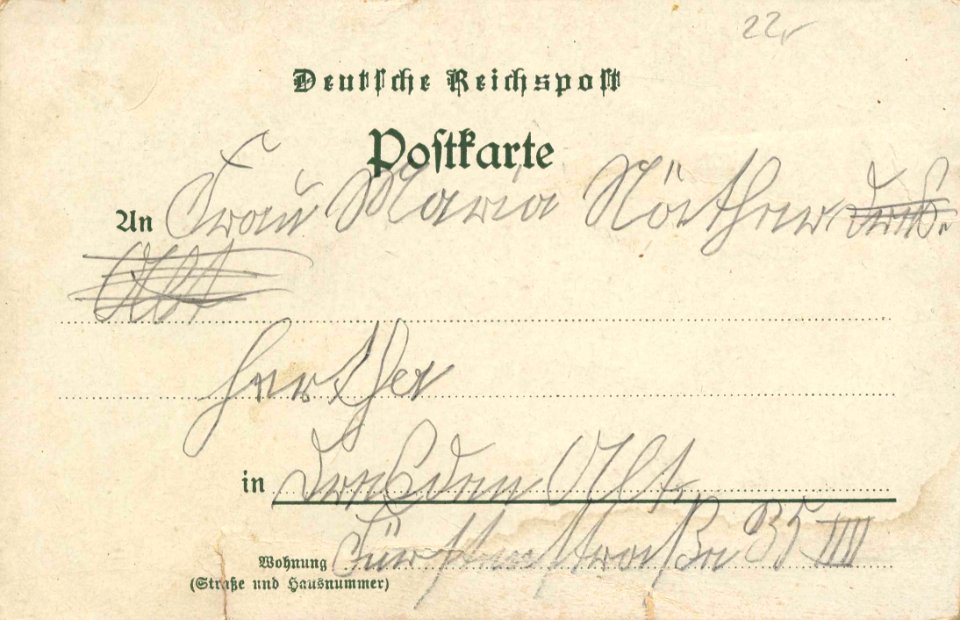 22,
Deutsche Reichspost
Postkarte
An Frau Maria Nöther Dresd.
Alt
Hertha
in Dresden Alt.
Wohnung Fürstenstraße 35 IIII
(Straße und Hausnummer)